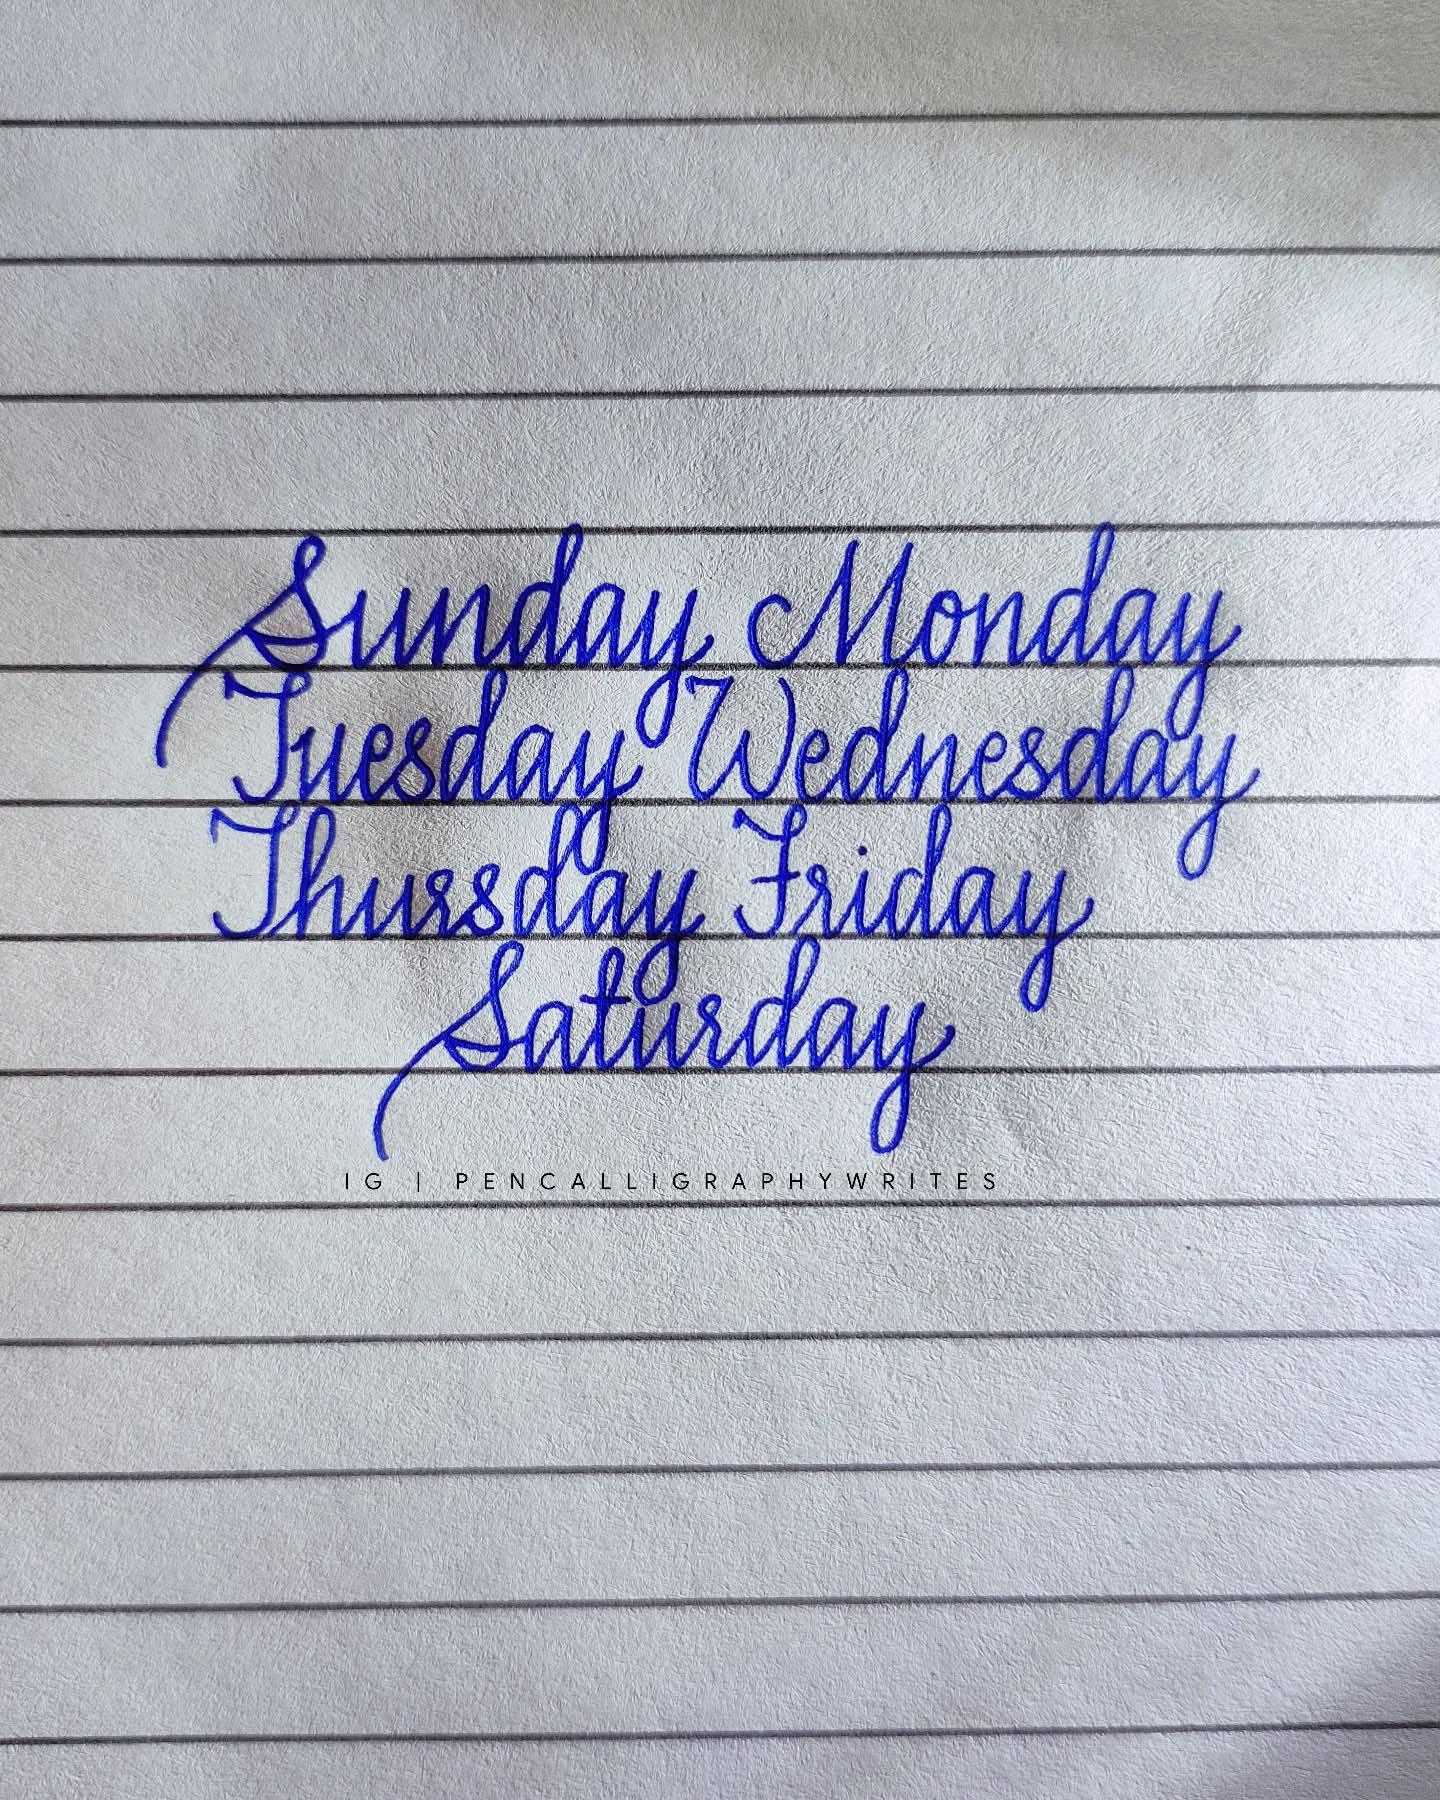 Sunday Monday
Tuesday Wednesday
Thursday Friday
Saturday
IG | PENCALLIGRAPHYWRITES